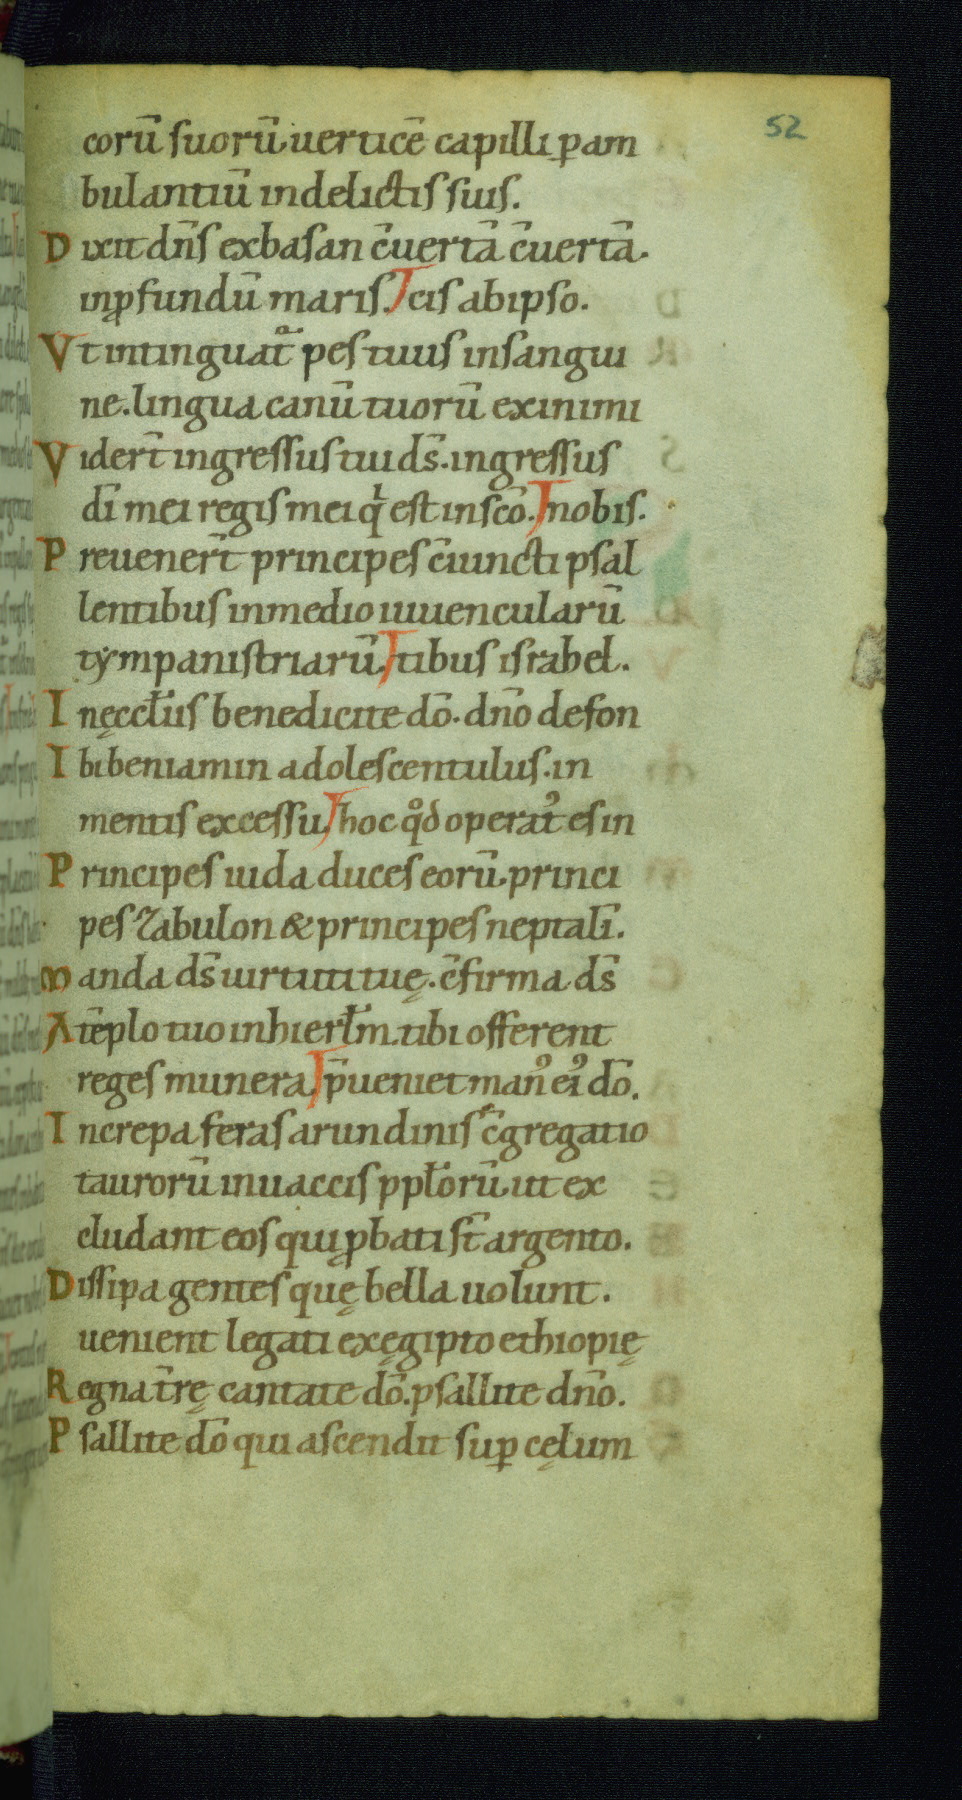 52
corū suorū. uerticē capilli ꝑam
bulantiū in delictis suis.
Dixit dn̄s ex basan c̄uertā c̄uertā.
in ꝓfundū maris. cis ab ipso.
Vt intinguat᷑ pes tuus in sangui
ne. lingua canū tuorū ex inimi
Vider̄t ingressus tui ds̄. ingressus
dī mei regis mei qͥ est in scō. nobis.
Preuener̄t principes c̄iuncti psal
lentibus in medio iuuencularū
tẏmpanistriarū. tibus israhel.
In ęccl̄iis benedicite dō. dn̄o de fon
Ibi beniamin adolescentulus. in
mentis excessu. hoc qͦd operatꝰ es in
Principes iuda duces eorū. princi
pes zabulon & principes neptalī.
Manda ds̄ uirtuti tuę. c̄firma ds̄
A tēplo tuo in hierl̄m. tibi offerent
reges munera. p̄ueniet manꝰ eiꝰ dō.
Increpa feras arundinis c̄gregatio
taurorū in uaccis ppl̄orū. ut ex
cludant eos qui ꝓbati st̄ argento.
Dissipa gentes quę bella uolunt.
uenient legati ex ęgipto ethiopię
Regna t̄rę cantate dō. psallite dn̄o.
Psallite dō qui ascendit suꝑ cęlum